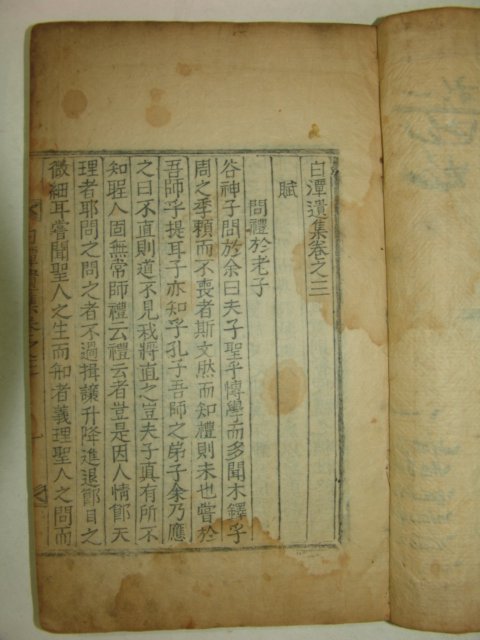 白潭遺集卷之三
賦
問禮於老子
谷神子問於余曰夫子聖乎博學而多聞木鐸乎
周之季頼而不喪者斯文然而知禮則未也嘗於
吾師乎提耳子亦知乎孔子吾師之弟子余乃應
之曰不直則道不見我將直之豈夫子真有所不
知聖人固無常師禮云禮云者豈是因人情節天
理者耶問之問之者不過揖讓升降進退節目之
微細耳嘗聞聖人之生而知者義理聖人之問而
白潭遺集卷之三